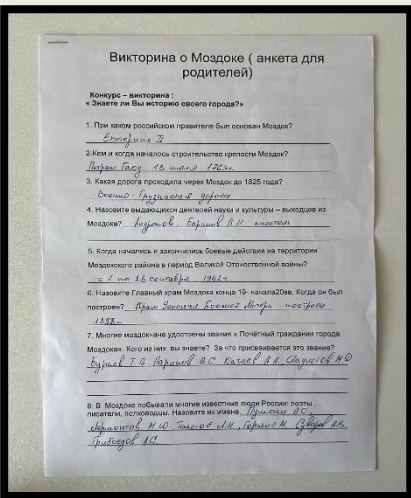 Викторина о Моздоке ( анкета для
родителей)
Конкурс – викторина :
« Знаете ли Вы историю своего города?»
1. При каком российском правителе был основан Моздок?
Екатерине II
2.Кем и когда началось строительство крепости Моздок?
1763г.
3. Какая дорога проходила через Моздок до 1825 года?
Военно-Грузинская дорога
4. Назовите выдающихся деятелей науки и культуры – выходцев из
Моздока? писатель
5. Когда начались и закончились боевые действия на территории
Моздокского района в период Великой Отечественной войны?
сентября 1942г.
6. Назовите Главный храм Моздока конца 19- начала20вв. Когда он был
построен? Храм Успения Божией Матери построен
7. Многие моздокчане удостоены звания « Почётный гражданин города
Моздока». Кого из них вы знаете? За что присваивается это звание?
8. В Моздоке побывали многие известные люди России: поэты ,
писатели, полководцы. Назовите их имена. Пушкин А.С.,
Лермонтов М.Ю. Толстой Л.Н., Горький М. Суворов А.В.,
Грибоедов А.С.